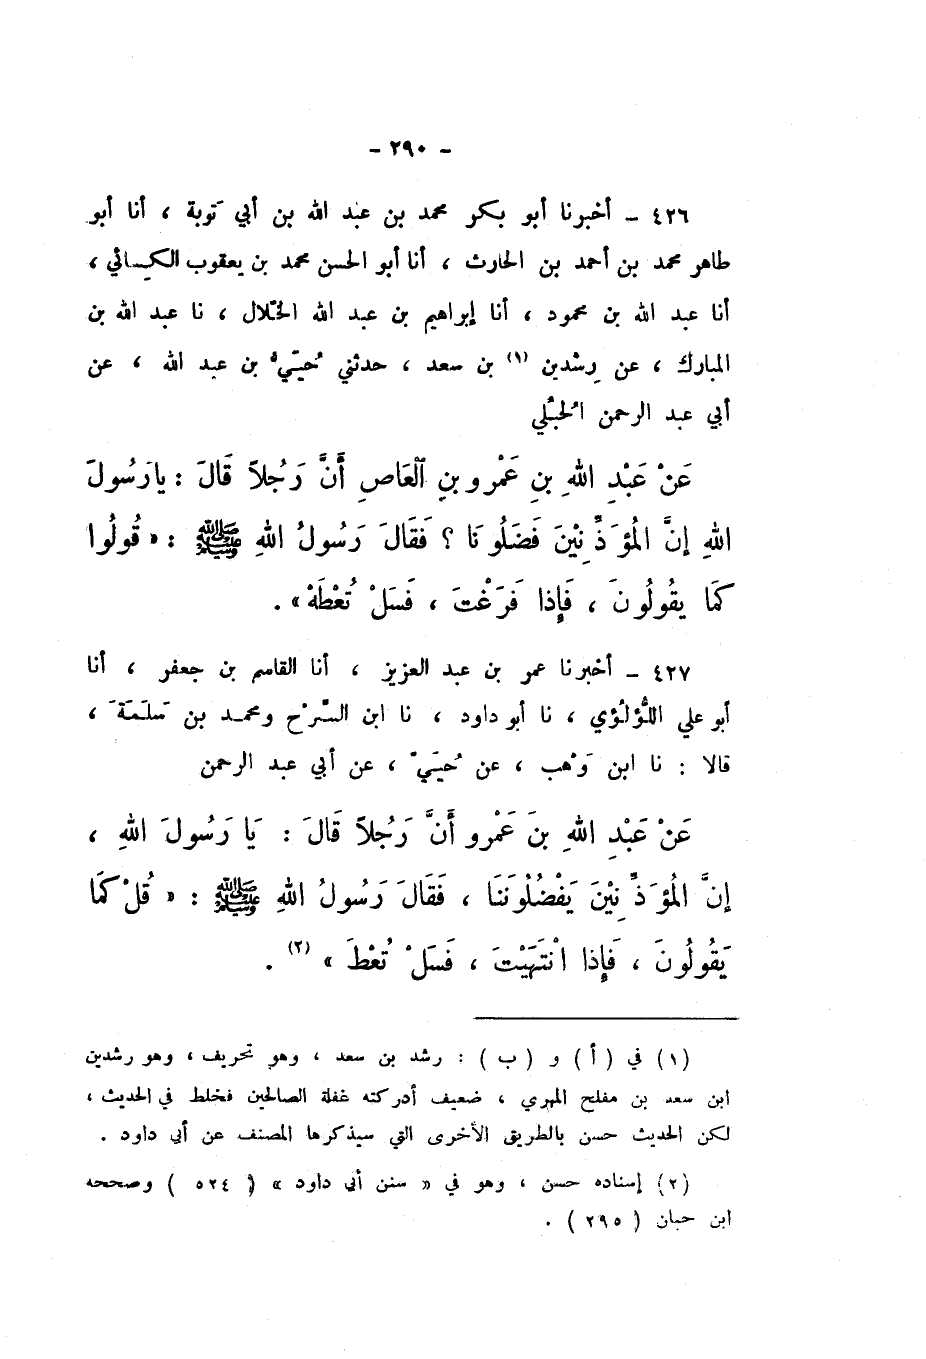 - ٢٩٠ -
٤٢٦ - أخبرنا أبو بكر محمد بن عبد الله بن أبي تَوبة ، أنا أبو
طاهر محمد بن أحمد بن الحارث ، أنا أبو الحسن محمد بن يعقوب الكسائي ،
أنا عبد الله بن محمود ، أنا إبراهيم بن عبد الله الخلّال ، نا عبد الله بن
المبارك ، عن رِشْدين (١) بن سعد ، حدثني حُيَيّ بن عبد الله ، عن
أبي عبد الرحمن الحُبُلي
عَنْ عَبْدِ اللهِ بنِ عَمْرو بنِ ٱلْعَاصِ أَنَّ رَجُلاً قَالَ : يارَسُولَ
اللهِ إنَّ المُؤَذِّنِيْنَ فَضَلُونَا ؟ فَقَالَ رَسُولُ اللهِ ﷺ : « قُولُوا
كَمَا يقُولُونَ ، فَإِذا فَرَغْتَ ، فَسَلْ تُعْطَهْ » .
٤٢٧ - أخبرنا عمر بن عبد العزيز ، أنا القاسم بن جعفر ، أنا
أبو علي اللُّؤلُؤي ، نا أبو داود ، نا ابن السَّرْح ومحمد بن سَلَمَةَ ،
قالا : نا ابن وَهْب ، عن حُيَيّ ، عن أبي عبد الرحمن
عَنْ عَبْدِ اللهِ بنَ عَمْرو أَنَّ رَجُلاً قَالَ : يَا رَسُولَ اللهِ ،
إنَّ المُؤَذِّنِيْنَ يَفْضُلُوَنَنَا ، فَقَالَ رَسُولُ اللهِ ﷺ : « قُلْ كَمَا
يَقُولُونَ ، فَإِذا انْتَهَيْتَ ، فَسَلْ تُعْطَ » (٢) .
(١) في ( أ ) و ( ب ) : رشد بن سعد ، وهو تحريف ، وهو رشدين
ابن سعد بن مفلح المهري ، ضعيف أدركته غفلة الصالحين فخلط في الحديث ،
لكن الحديث حسن بالطريق الأخرى التي سيذكرها المصنف عن أبي داود .
(٢) إسناده حسن ، وهو في « سنن أبي داود » ( ٥٢٤ ) وصححه
ابن حبان ( ٢٩٥ ) .